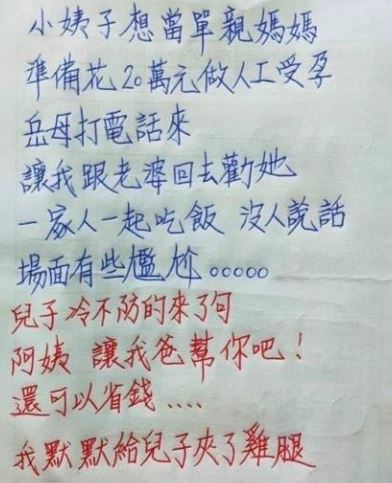 小姨子想當單親媽媽
準備花20萬元做人工受孕
岳母打電話來
讓我跟老婆回去勸她
一家人一起吃飯 沒人說話
場面有些尷尬。。。。。
兒子冷不防的來了句
阿姨 讓我爸幫你吧！
還可以省錢....
我默默給兒子夾了雞腿